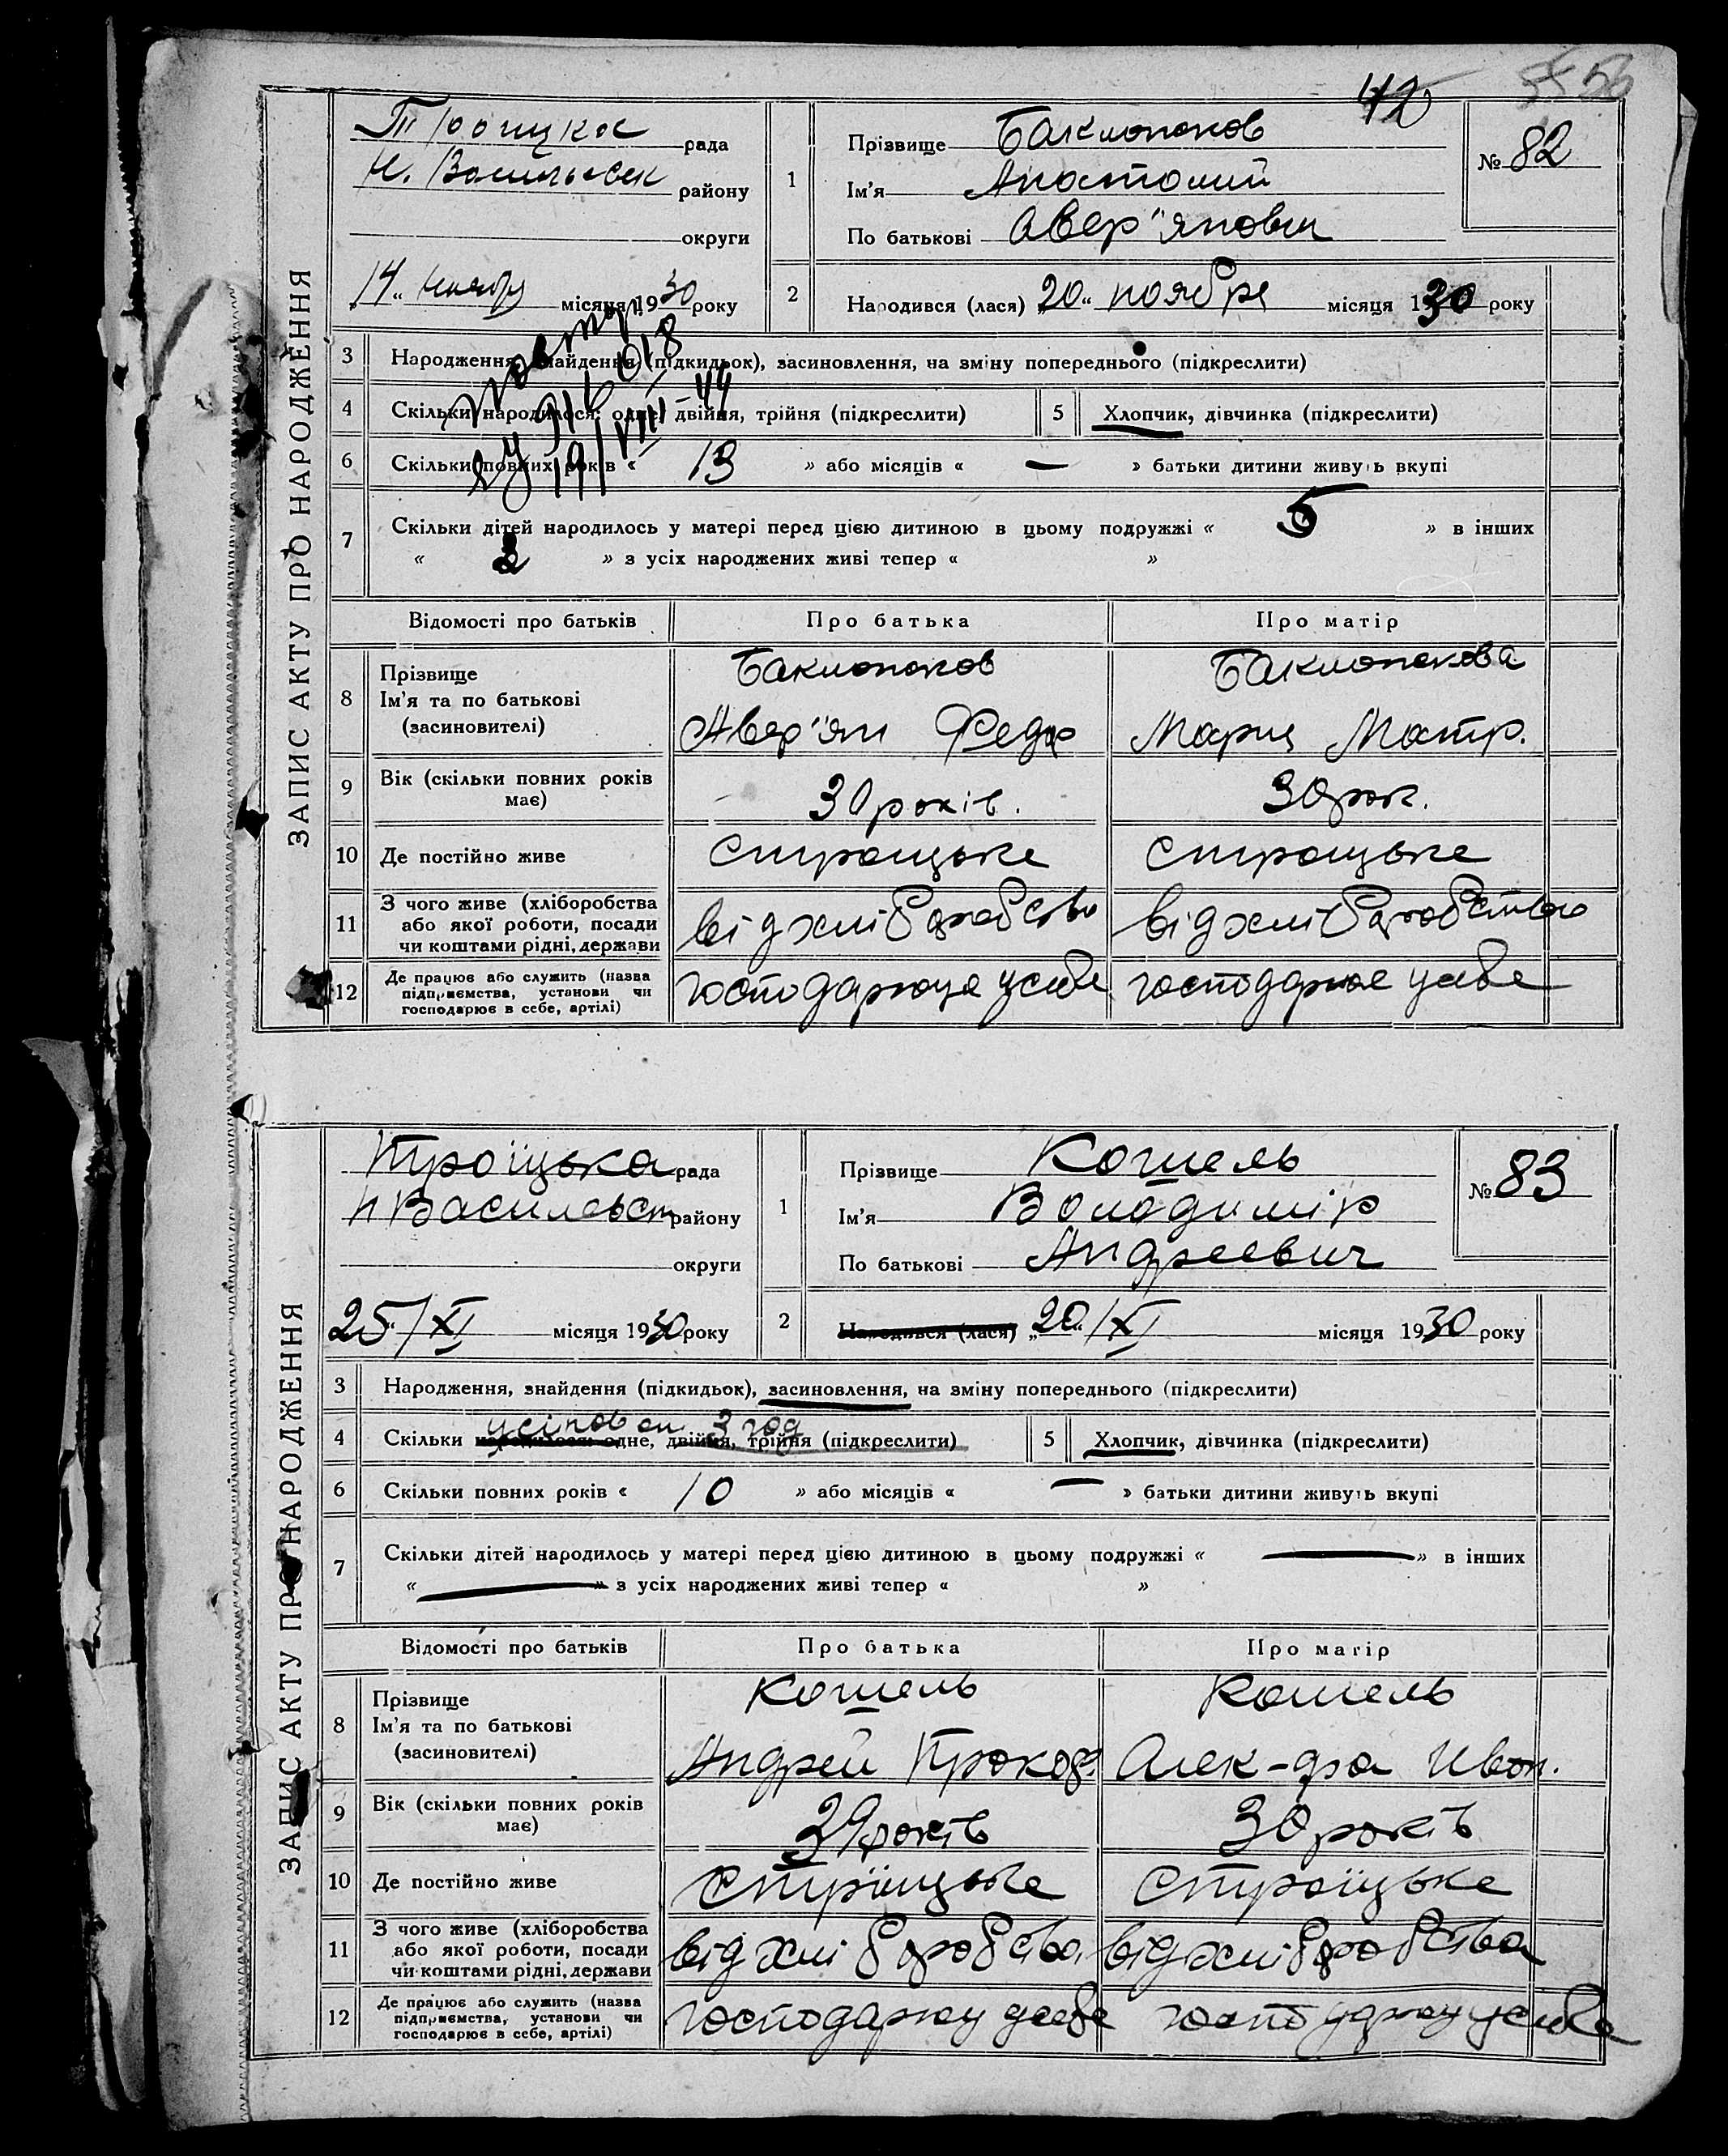 42
55 56
ЗАПИС АКТУ ПРО НАРОДЖЕННЯ
Троицкое рада
Н. Васильевск району
округи
14 " місяця 1930 року
1
Прізвище Баклапоков
Ім'я Анатолий
По батькові Авер"янови
№ 82
2
Народився (лася) „20" ноября місяця 1930 року
3 Народження, знайдення (підкидьок), засиновлення, на зміну попереднього (підкреслити)
4 Скільки народилося: одне, двійня, трійня (підкреслити)
5 Хлопчик, дівчинка (підкреслити)
6 Скільки повних років « 13 » або місяців « — » батьки дитини живуть вкупі
7 Скільки дітей народилось у матері перед цією дитиною в цьому подружжі « 5 » в інших
« » з усіх народжених живі тепер « »
Відомості про батьків Про батька Про матір
8 Прізвище
Ім'я та по батькові
(засиновителі)
Авер"ян Федо Мария
9 Вік (скільки повних років має) 30 років. 30 рок.
10 Де постійно живе Стройцьке Стройцьке
11 З чого живе (хліборобства
або якої роботи, посади
чи коштами рідні, держави
від хліборобство від хліборобства
12 Де працює або служить (назва
підприємства, установи чи
господарює в себе, артілі)
ЗАПИС АКТУ ПРО НАРОДЖЕННЯ
Троїцька рада
Н Васильевск району
округи
25"/XI місяця 1930 року
1
Прізвище Кошель
Ім'я Володимір
По батькові Андреевич
№ 83
2
Народився (лася) „20"/XI місяця 1930 року
3 Народження, знайдення (підкидьок), засиновлення, на зміну попереднього (підкреслити)
3 год
4 Скільки народилося: одне, двійня, трійня (підкреслити)
5 Хлопчик, дівчинка (підкреслити)
6 Скільки повних років « 10 » або місяців « — » батьки дитини живуть вкупі
7 Скільки дітей народилось у матері перед цією дитиною в цьому подружжі « — » в інших
« — » з усіх народжених живі тепер « »
Відомості про батьків Про батька Про матір
8 Прізвище
Ім'я та по батькові
(засиновителі)
Кошель Кошель
Андрей Прокоф. Алек-дра Иван.
9 Вік (скільки повних років має) років 30 років
10 Де постійно живе Строїцьке Строїцьке
11 З чого живе (хліборобства
або якої роботи, посади
чи коштами рідні, держави
від хліборобства від хліборобства
12 Де працює або служить (назва
підприємства, установи чи
господарює в себе, артілі)
господарюу усебе господарюу усебе